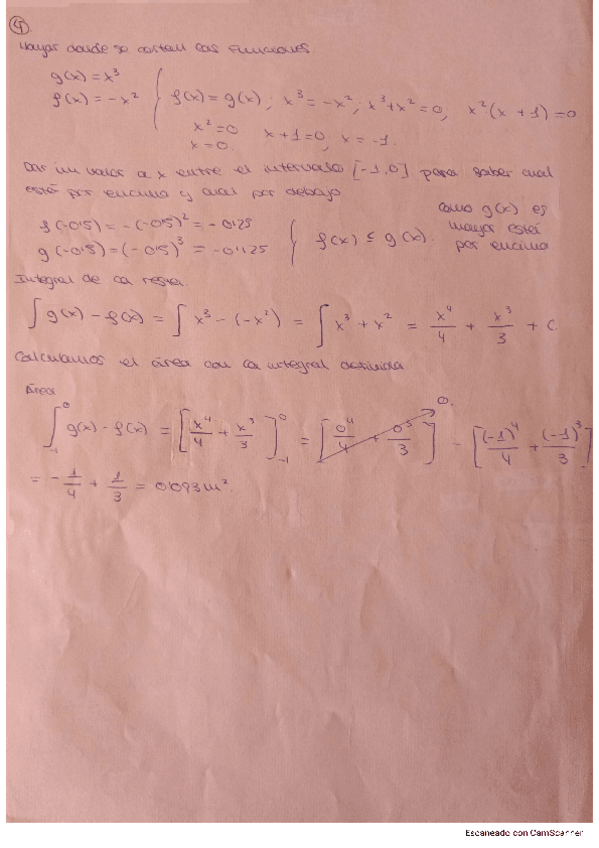 ④
Hayar donde se cortan las funciones.
g(x) = x³
f(x) = -x² { f(x) = g(x) ; x³ = -x² ; x³ + x² = 0, x² (x + 1) = 0
x² = 0 x + 1 = 0, x = -1.
x = 0.
Dar un valor a x entre el intervalo [-1,0] para saber cual
esté por encima y cual por debajo
f(-0'5) = -(-0'5)² = -0'25
g(-0'5) = (-0'5)³ = -0'125 { f(x) ≤ g(x). como g(x) es
mayor está
por encima
Integral de la resta
∫ g(x) - f(x) = ∫ x³ - (-x²) = ∫ x³ + x² = x⁴/4 + x³/3 + C
Calculamos el área con la integral definida
Área
∫₋₁⁰ g(x) - f(x) = [x⁴/4 + x³/3]₋₁⁰ = [0⁴/4 + 0³/3] 0. - [(-1)⁴/4 + (-1)³/3]
= -1/4 + 1/3 = 0'083 m².
Escaneado con CamScanner